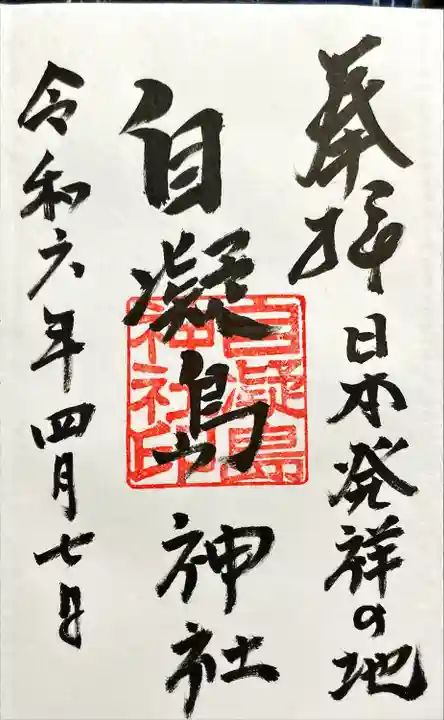 奉拝 日本発祥の地
自凝島神社
自凝島
神社印
令和六年四月七日